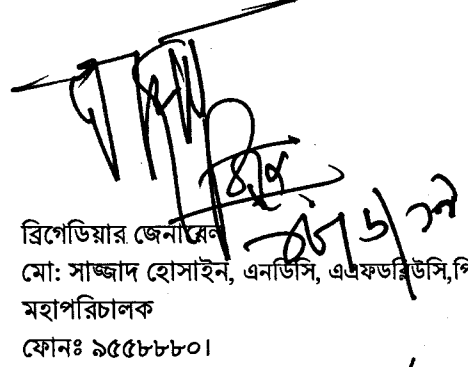 ব্রিগেডিয়ার জেনারেল
মো: সাজ্জাদ হোসাইন, এনডিসি, এএফডব্লিউসি,পি
মহাপরিচালক
ফোনঃ ৯৫৫৮৮৮০।